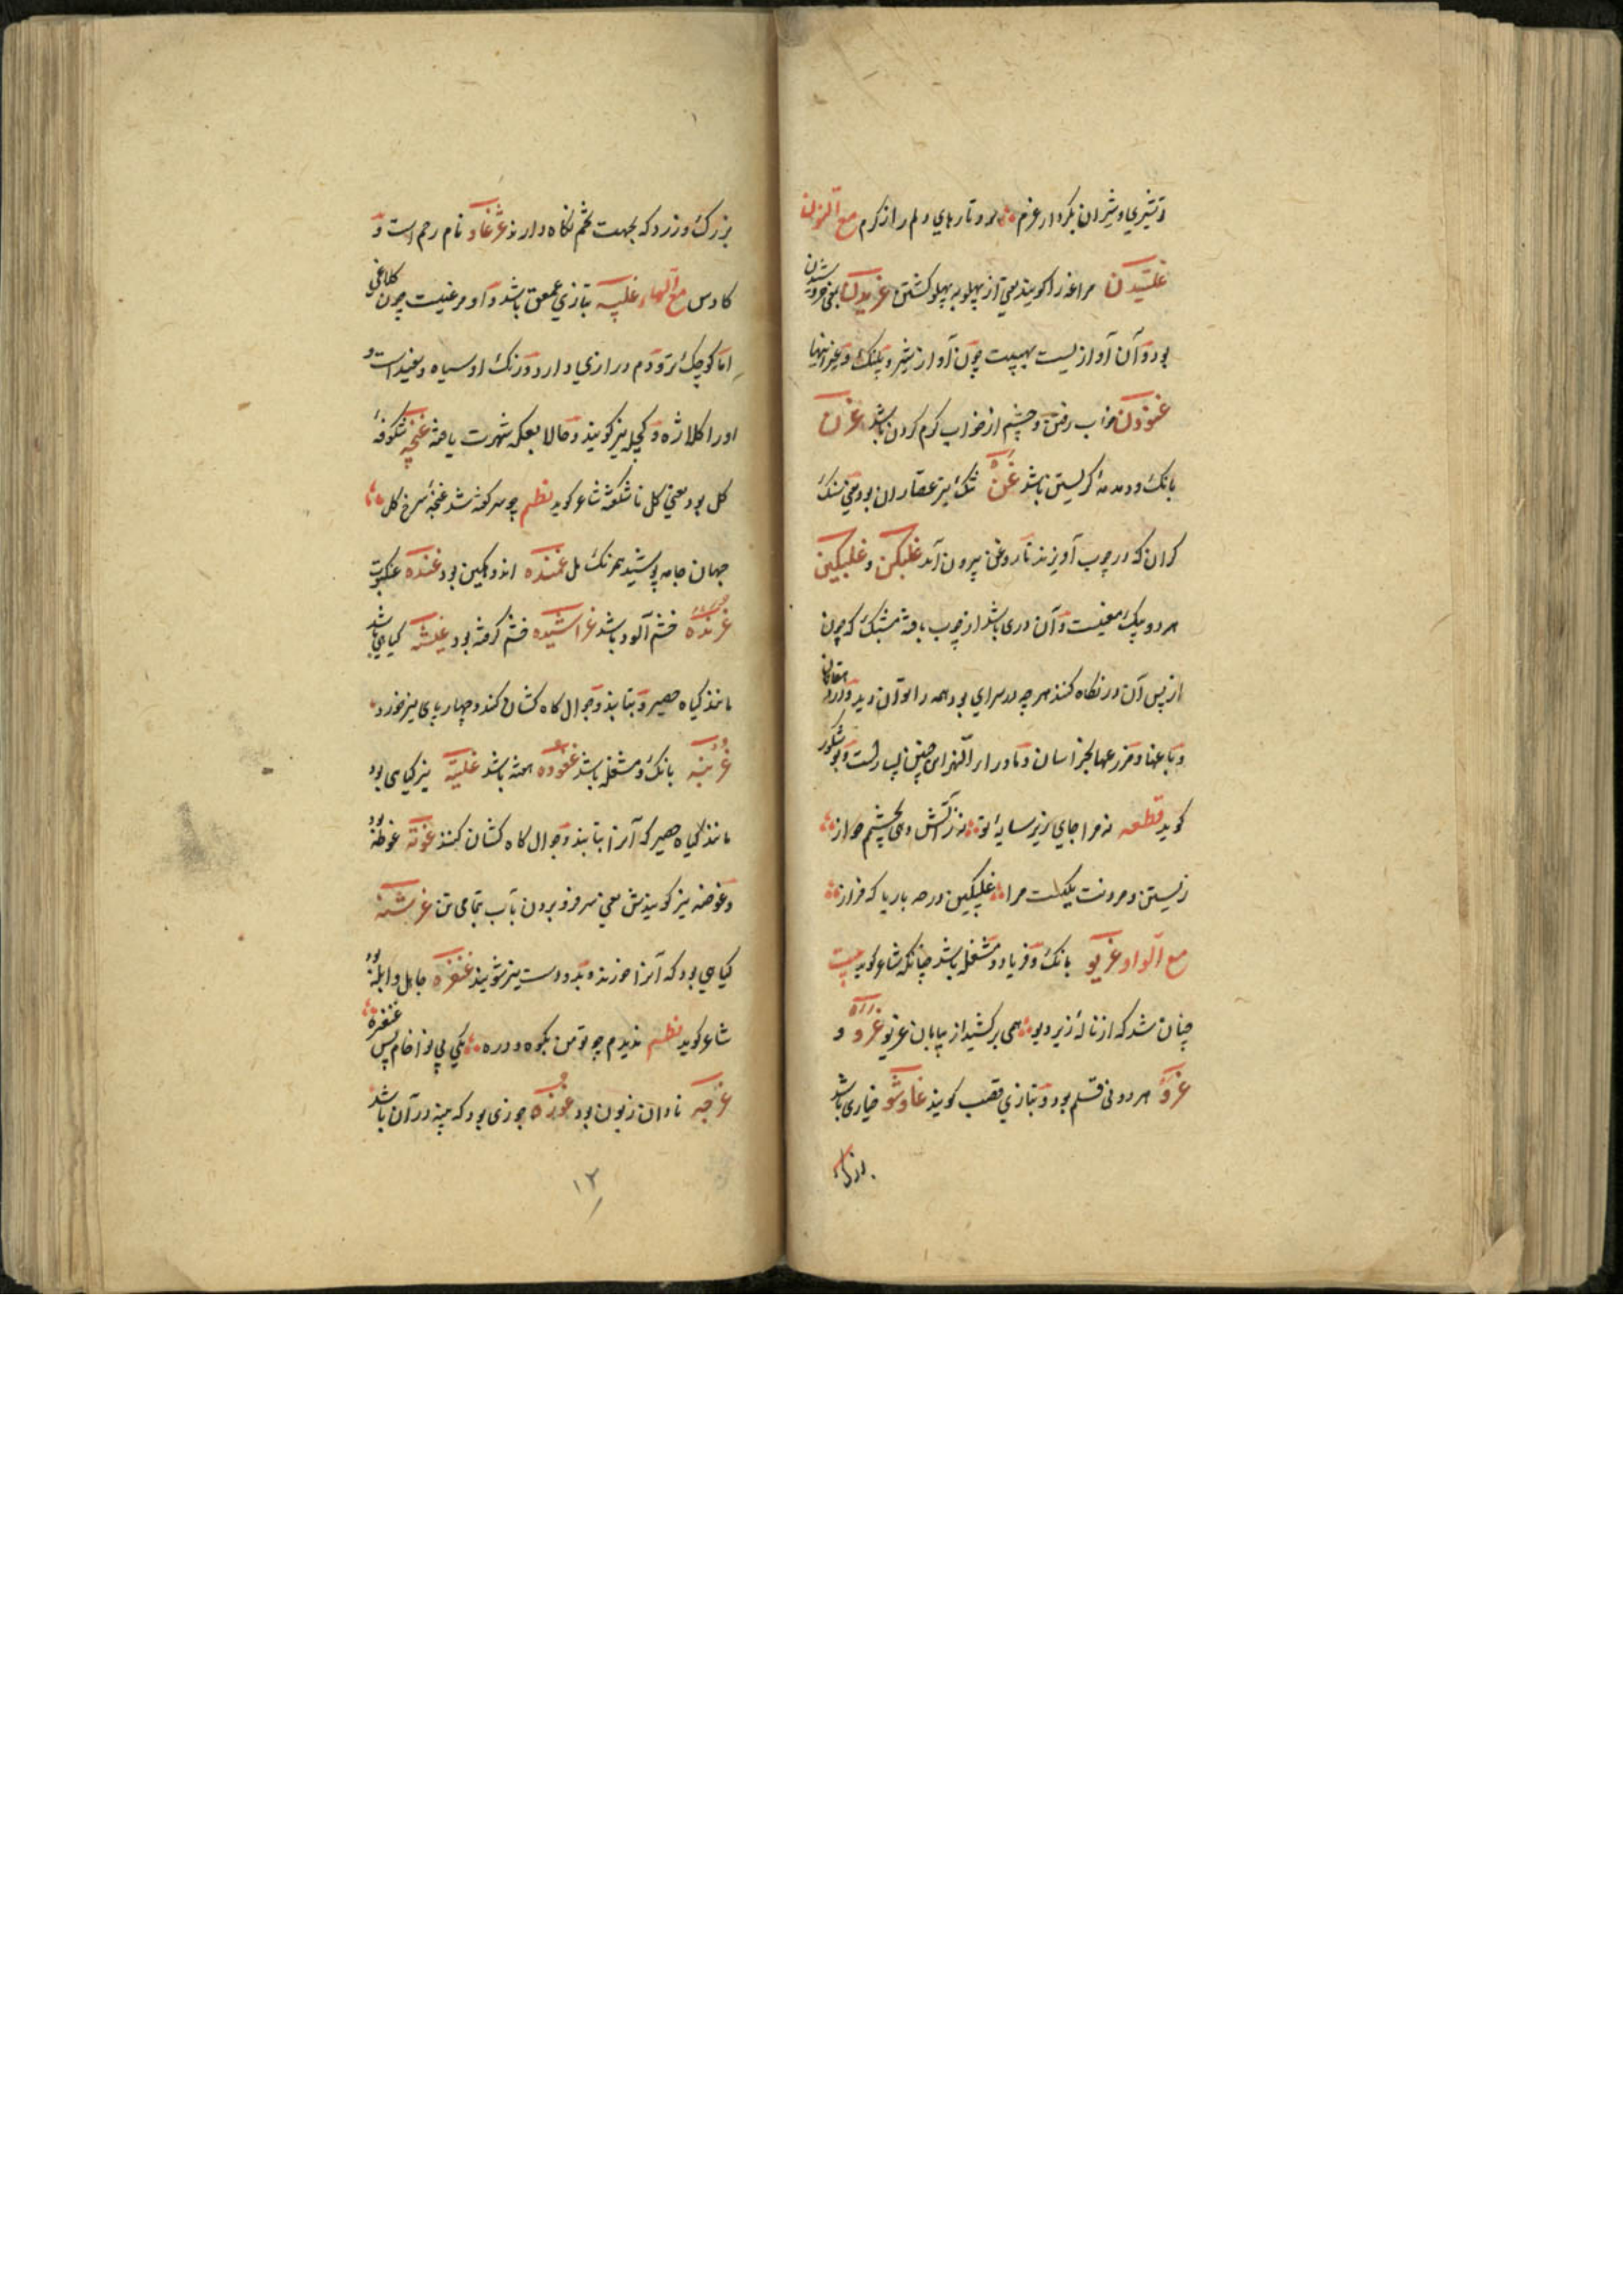 و تیزی و شیران بکردار غرم بود تارهای دلم را ز کرم مع النون
غلتیدن مراغه را کویند یعنی از پهلو به پهلو کشتن غریدن یعنی خروشیدن
بود و آن آوازیست بهیبت چون آواز شیر و پلنک و غیر اینها
غنودن خواب رفتن و چشم از خواب کرم کردن باشد غرن
بانک و دمدمهٔ کریستن باشد غن تنک تیر عصاران بود یعنی سنک
کران که در چوب آویزند تا روغن بیرون آید غلبکن و غلبکین
هر دو بیک معنیست و آن دری باشد از چوب بافته مشبک که چون
از پس آن در نکاه کنند هر چه در سرای بود همه را بتوان دید و در دهقانان
و باغها و مزرعها بخراسان و ماورا النهر این چنین بسیارست و بوشکور
کوید قطعه نه مرا جای زیر سایهٔ تو نه ز آتش دهی بحشم جواز
زیستن و مردنت یکیست مرا غلبکین در چه باز یا که فراز
مع الواو غریو بانک و فریاد و مشغله باشد چنانکه شاعر کوید بیت
چنان شد که از نالهٔ زیر و بو همی برکشید از بیابان غریو غرو و
غرو هر دو نی قلم بود و بتازی قصب کویند غاوشو خیاری باشد
بزرک
بزرک و زرد که بجهت تخم نکاه دارند غژغاو نام رحم است و
کاوس مع الهاء غلبه بتازی عقعق باشد و او مرغیست چون کلاغی
اما کوچک تر و دم درازی دارد و رنک او سیاه و سفید است و
اورا کلاژه و کجله نیز کویند و حالا بعکه شهرت یافته غنچه شکوفهٔ
کل بود یعنی کل ناشکفته شاعر کوید نظم چو سر کفته شد غنچهٔ سرخ کل
جهان جامه پوشید همرنک مل غمنده اندوهکین بود غنده عنکبوت
غرنده خشم آلود باشد غراشیده خشم کرفته بود غلشه کیاهی باشد
مانند کیاه حصیر و بتابند و جوال کاه کشان کنند و چهار پای نیز خورد
غرنبه بانک و مشغله باشد غفوده هفته باشد غلیته نیز کیاهی بود
مانند کیاه حصیر که آنرا بتابند و جوال کاه کشان کنند غوته غوطه بود
و غوضه نیز کویندش یعنی سر فرو بردن بآب بتمامی تن غرشنه
کیاهی بود که آنرا خورند و بدو دست نیز شویند غنغره جاهل و ابله بود
شاعر کوید نظم ندیدم چو تو من بکوه و دره یکی بی نوا خام پس غنغره
غرچه نادان زبون بود غوزه جوزی بود که پنبه در آن باشد
۱۲